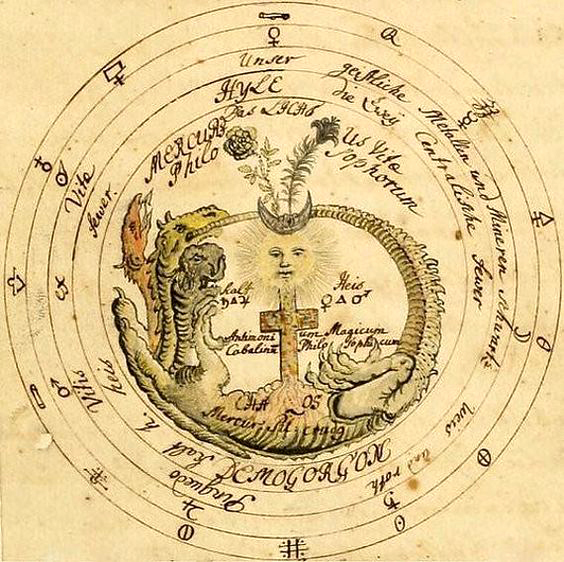 Unser
HYLE
Das LICHT
MERCURI
Philo
US Vitæ
Sophorum
geistliche Metallen und Mineren Schwartz
die Ewig Centralische fewer
weis
und roth
Vitæ
fewer.
kalt
Heis
Antimoni
um Magicum
Philo
Sophicum
CHA OS
Mercuri
DEMOGORGON
Pinguedo
kalt h.
Vitis
heis